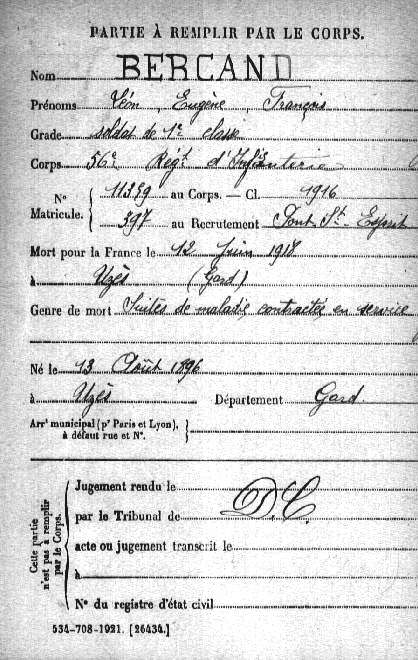 PARTIE À REMPLIR PAR LE CORPS.
Nom BERCAND
Prénoms Léon, Eugène, François
Grade soldat de 1e classe
Corps 56e Régt d'Infanterie
N° Matricule. 11359 au Corps. — Cl. 1916
597 au Recrutement Pont St-Esprit
Mort pour la France le 12 Juin 1918
à Uzès (Gard)
Genre de mort Suites de maladie contractée en service
Né le 13 Août 1896
à Uzès Département Gard.
Arrt municipal (pr Paris et Lyon), à défaut rue et N°.
Cette partie n'est pas à remplir par le Corps.
Jugement rendu le
par le Tribunal de D.C.
acte ou jugement transcrit le
à
N° du registre d'état civil
534-708-1921. [26434.]